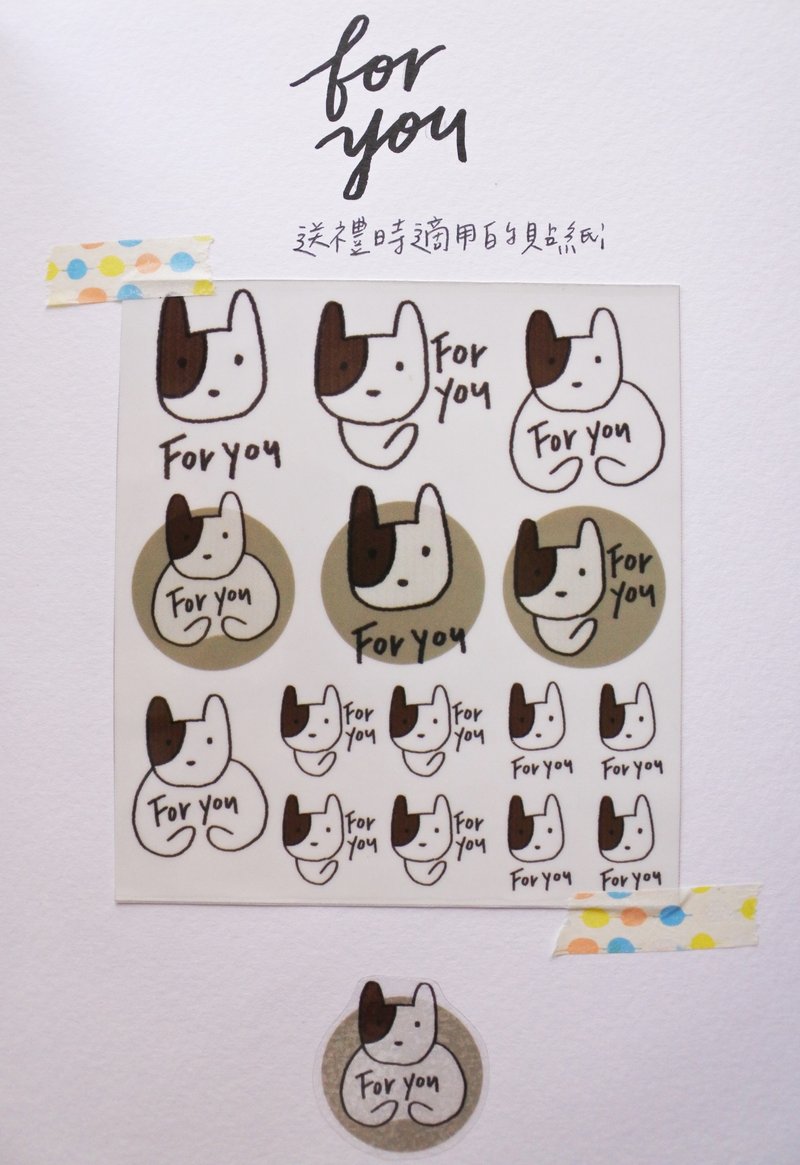 for
you
送禮時適用的貼紙
For you
For
you
For you
For you
For you
For
you
For you
For
you
For
you
For you
For you
For
you
For
you
For you
For you
For you